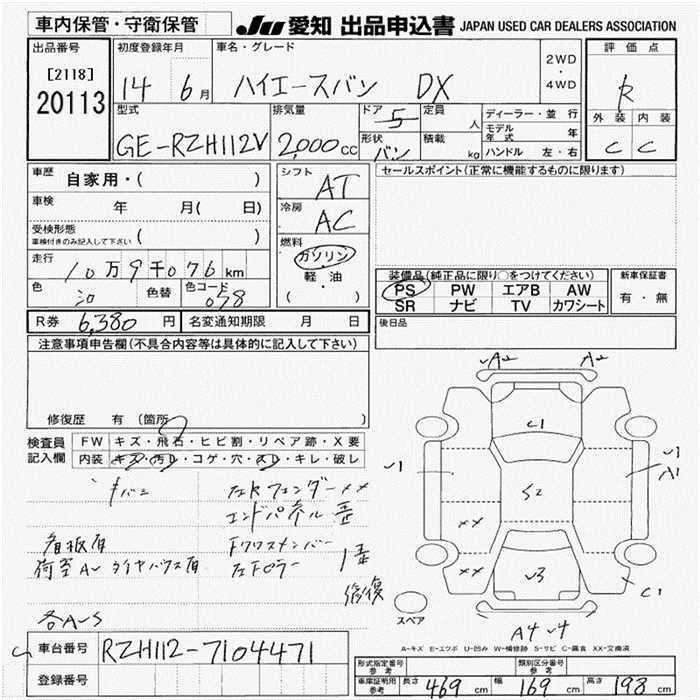 車内保管・守衛保管
JU 愛知 出品申込書 JAPAN USED CAR DEALERS ASSOCIATION
出品番号
[2118]
20113
初度登録年月
14 6月
車名・グレード
ハイエースバン DX
2WD
・
4WD
評価点
R
外装 内装
C C
型式
GE-RZH112V
排気量
2,000cc
ドア 5
形状 バン
定員 人
積載 kg
ディーラー・並行
モデル年式 年
ハンドル 左・右
車歴 自家用・( )
車検 年 月( 日)
受検形態
車検付きのみ記入して下さい ( )
走行 10万9千076km
色 シロ 色替 色コード 058
R券 6,380円 名変通知期限 月 日
シフト AT
冷房 AC
燃料
ガソリン
・
軽・油
( )
セールスポイント(正常に機能するものに限ります)
装備品(純正品に限り○をつけてください)
PS PW エアB AW
SR ナビ TV カワシート
新車保証書
有・無
後日品
注意事項申告欄(不具合内容等は具体的に記入して下さい)
修復歴 有(箇所 )
検査員記入欄
FW キズ・飛石・ヒビ割・リペア跡・X要
内装 キズ・汚レ・コゲ・穴・スレ・キレ・破レ
左Rフェンダー××
エンドパネル
下クロスメンバー
修復
各A〜S
A2 A2
C1
S2
××
××
√3
√1
√1
A1
C1
A4 √4
スペア
A-キズ E-エクボ U-凹み W-補修跡 S-サビ C-腐食 XX-交換済
車台番号 RZH112-7104471
登録番号
形式指定番号参考
類別区分番号参考
車庫証明用参考 長さ 469cm 幅 169cm 高さ 198cm